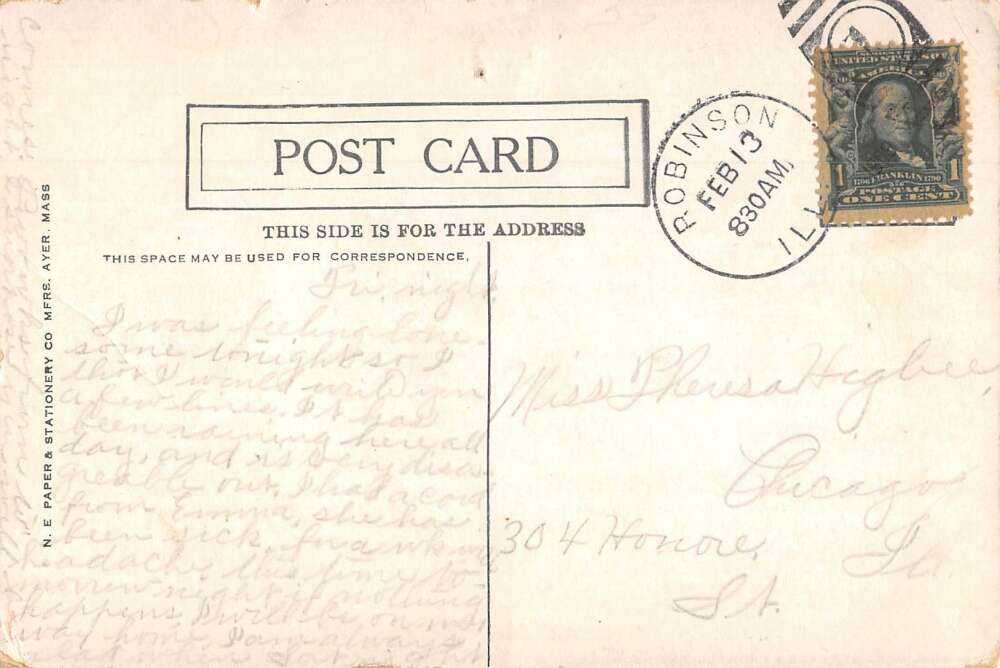 POST CARD
THIS SIDE IS FOR THE ADDRESS
THIS SPACE MAY BE USED FOR CORRESPONDENCE,
N. E. PAPER & STATIONERY CO MFRS. AYER. MASS
ROBINSON
FEB 13
830AM.
ILL
UNITED STATES OF
AMERICA
1 1706 FRANKLIN 1790 1
POSTAGE
ONE CENT
Fri. night
I was feeling lone-
some tonight so I
thot I would write you
a few lines. It has
been raining here all
day, and is very disa-
greable out. I had a card
from Emma, she has
been sick, for a wk
headache. this time to-
morrow night if nothing
happens I will be on my
way home. I am always
when
Miss Theresa Higbee,
Chicago
304 Honore, Ill.
St.